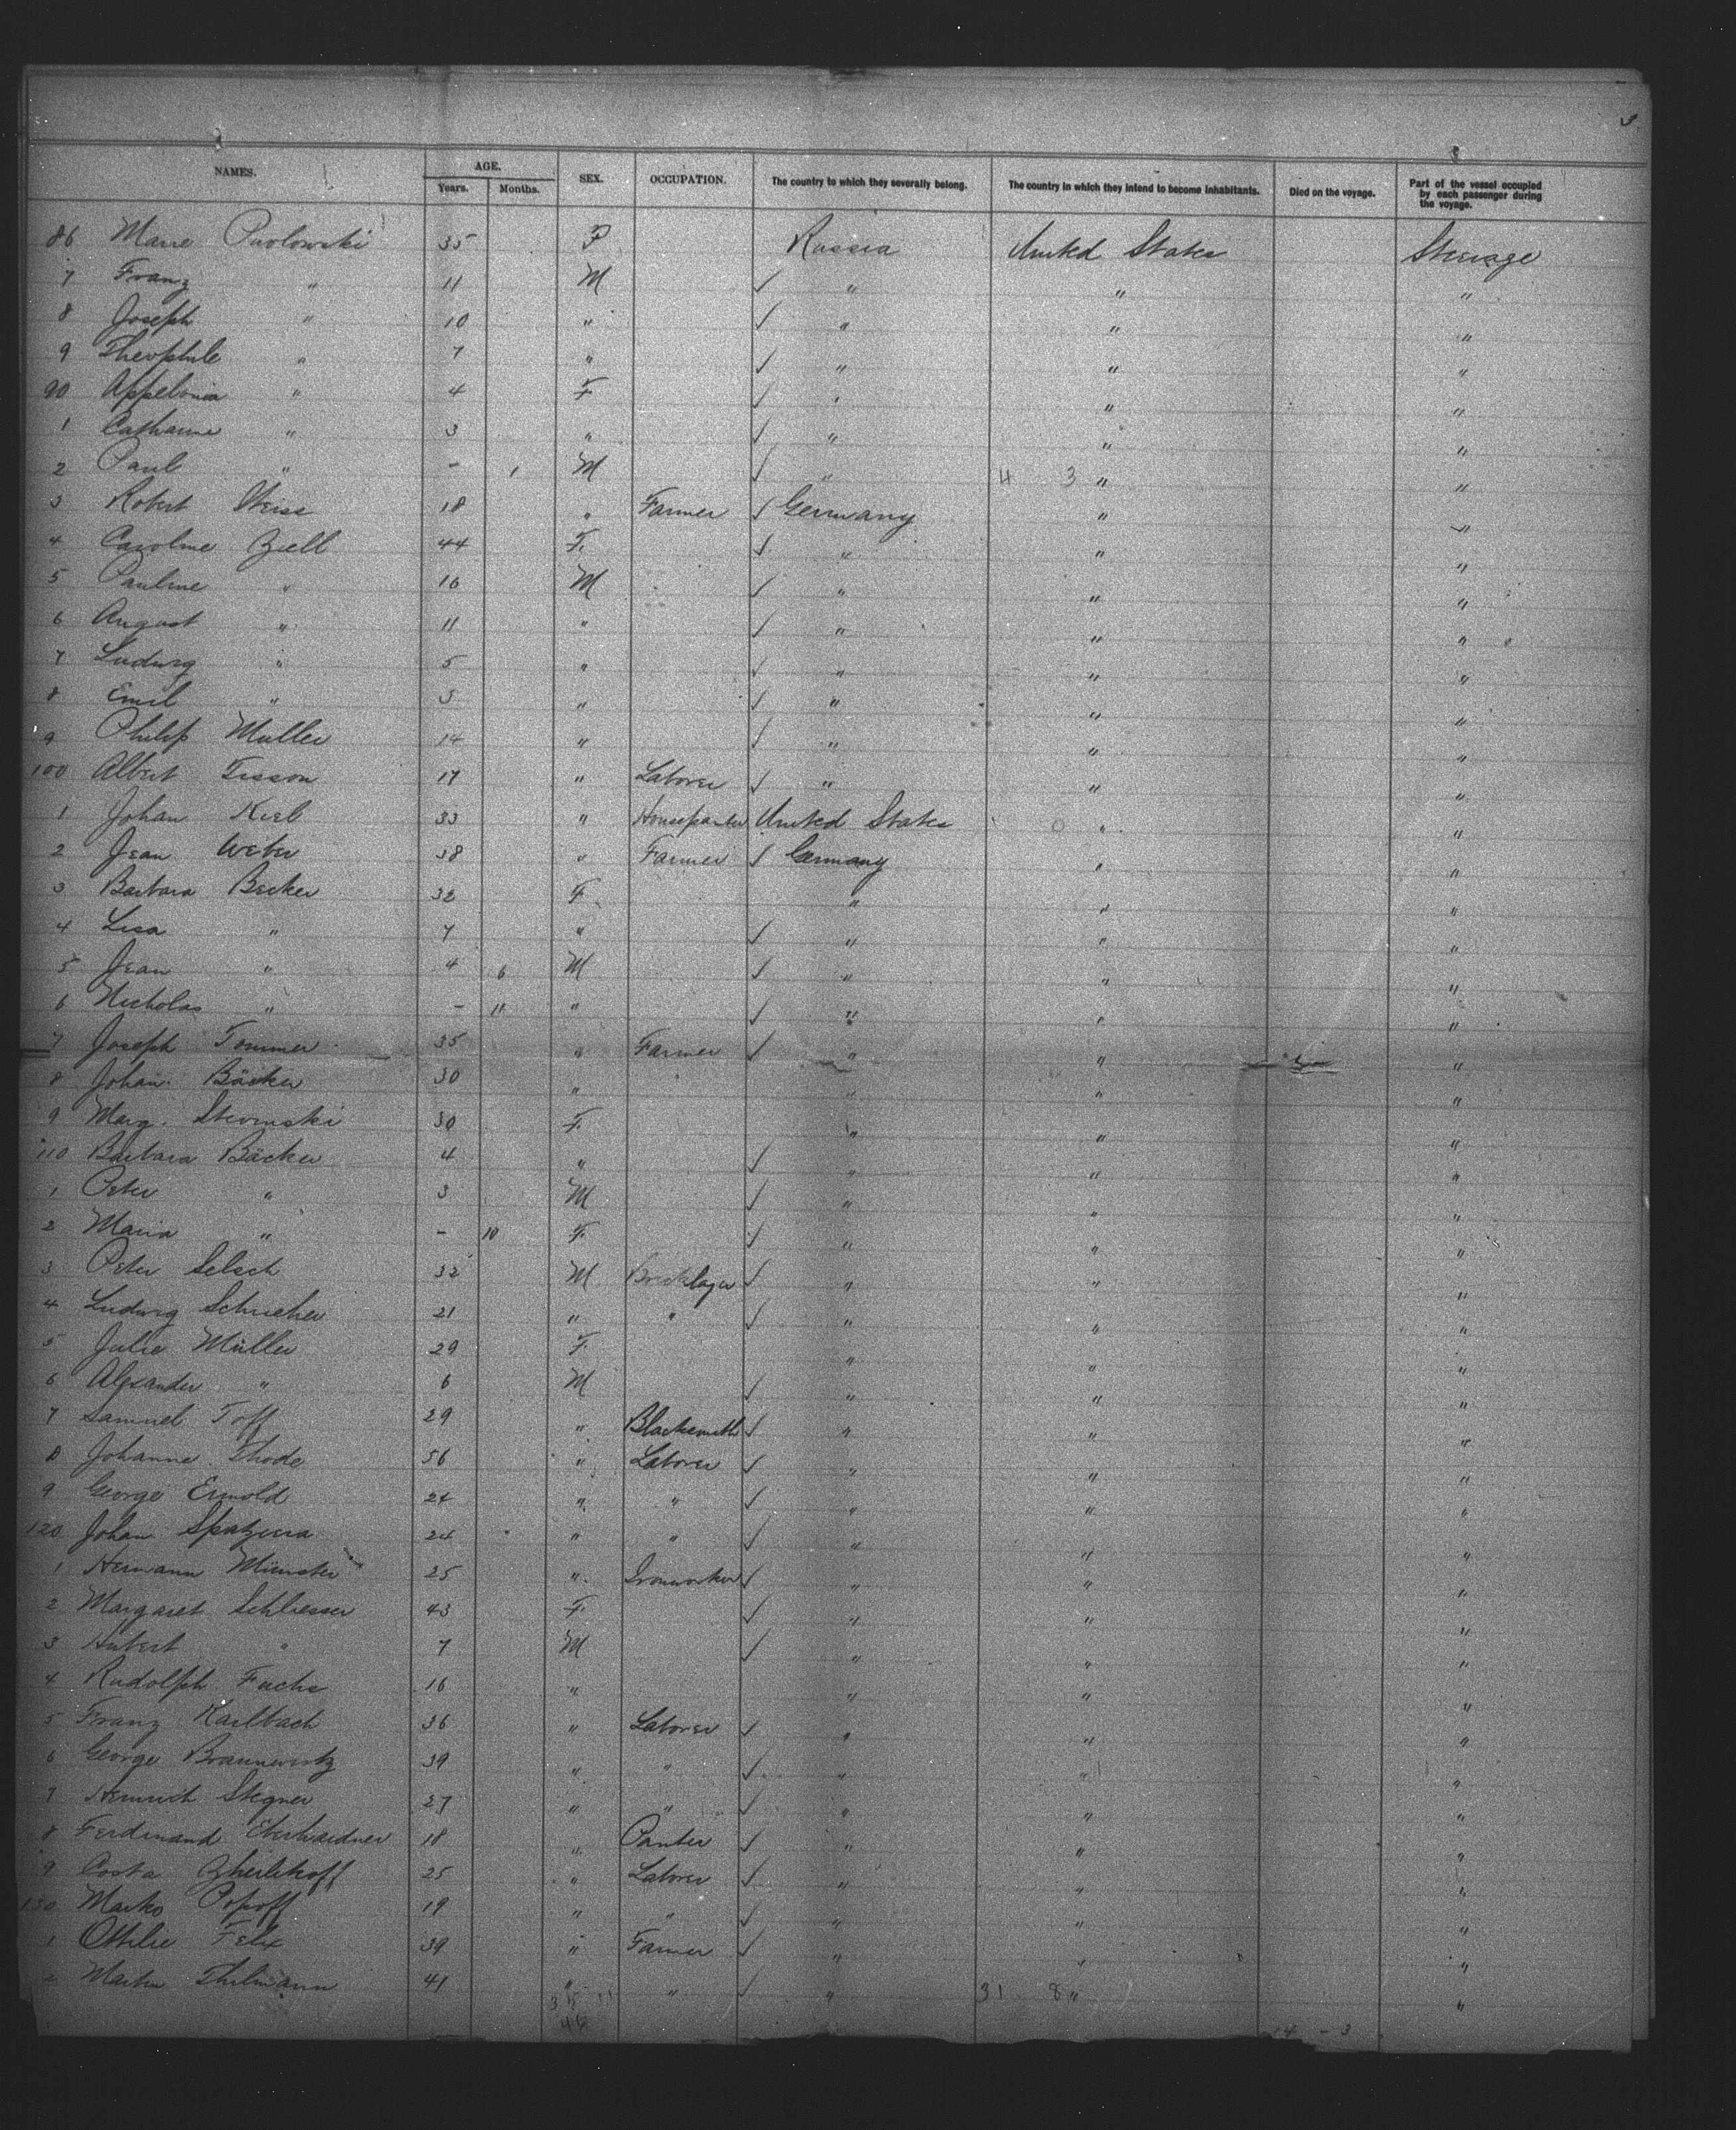 NAMES. AGE. Years. Months. SEX. OCCUPATION. The country to which they severally belong. The country in which they intend to become inhabitants. Died on the voyage. Part of the vessel occupied by each passenger during the voyage.
86 Marie Pavlowski 35 F Russia United States Steerage
7 Franz " 11 M ✓ " " "
8 Joseph " 10 " ✓ " " "
9 Theophile " 7 " ✓ " " "
90 Appelonia " 4 F ✓ " " "
1 Catharine " 3 " ✓ " " "
2 Paul " - 1 M ✓ " 4 3 " "
3 Robert Weiss 18 " Farmer ✓ Germany " "
4 Caroline Zell 44 F. ✓ " " "
5 Pauline " 16 M ✓ " " "
6 August " 11 " ✓ " " "
7 Ludwig " 5 " ✓ " " "
8 Emil " 3 " ✓ " " "
9 Philip Muller 14 " ✓ " " "
100 Albert Tisson 17 " Laborer ✓ " " "
1 Johan Kiel 33 " Housepainter United States 0 " "
2 Jean Weber 38 " Farmer ✓ Germany " "
3 Barbara Becker 32 F. " " "
4 Lisa " 7 " ✓ " " "
5 Jean " 4 6 M ✓ " " "
6 Nicholas " - 11 " ✓ " " "
7 Joseph Tommer 35 " Farmer ✓ " " "
8 Johan Bäcker 30 " " " "
9 Marg. 30 F. " " "
110 Barbara Bäcker 4 " ✓ " " "
1 Peter " 3 M ✓ " " "
2 Maria " - 10 F. ✓ " " "
3 Peter Selsch 32 M Bricklayer ✓ " " "
4 Ludwig 21 " " ✓ " " "
5 Julie Müller 29 F. " " "
6 Alexander " 6 M ✓ " " "
7 Samuel Toff 29 " Blacksmith ✓ " " "
8 Johanne Thode 56 " Laborer ✓ " " "
9 George Ernold 24 " " ✓ " " "
120 Johan 24 " " ✓ " " "
1 Hermann Münster 25 " Ironworker ✓ " " "
2 Margaret Schliesser 43 F. ✓ " " "
3 Hubert " 7 M ✓ " " "
4 Rudolph Fuchs 16 " " " "
5 Franz Karlbach 36 " Laborer ✓ " " "
6 George 39 " " ✓ " " "
7 Heinrich Stegner 27 " " ✓ " " "
8 Ferdinand 18 " Painter ✓ " " "
9 Costa 25 " Laborer ✓ " " "
130 Marko Popoff 19 " " ✓ " " "
1 Ottilie Felix 39 " Farmer ✓ " " "
2 Martin Thilmann 41 " " ✓ " 31 8 " "
4 - 3